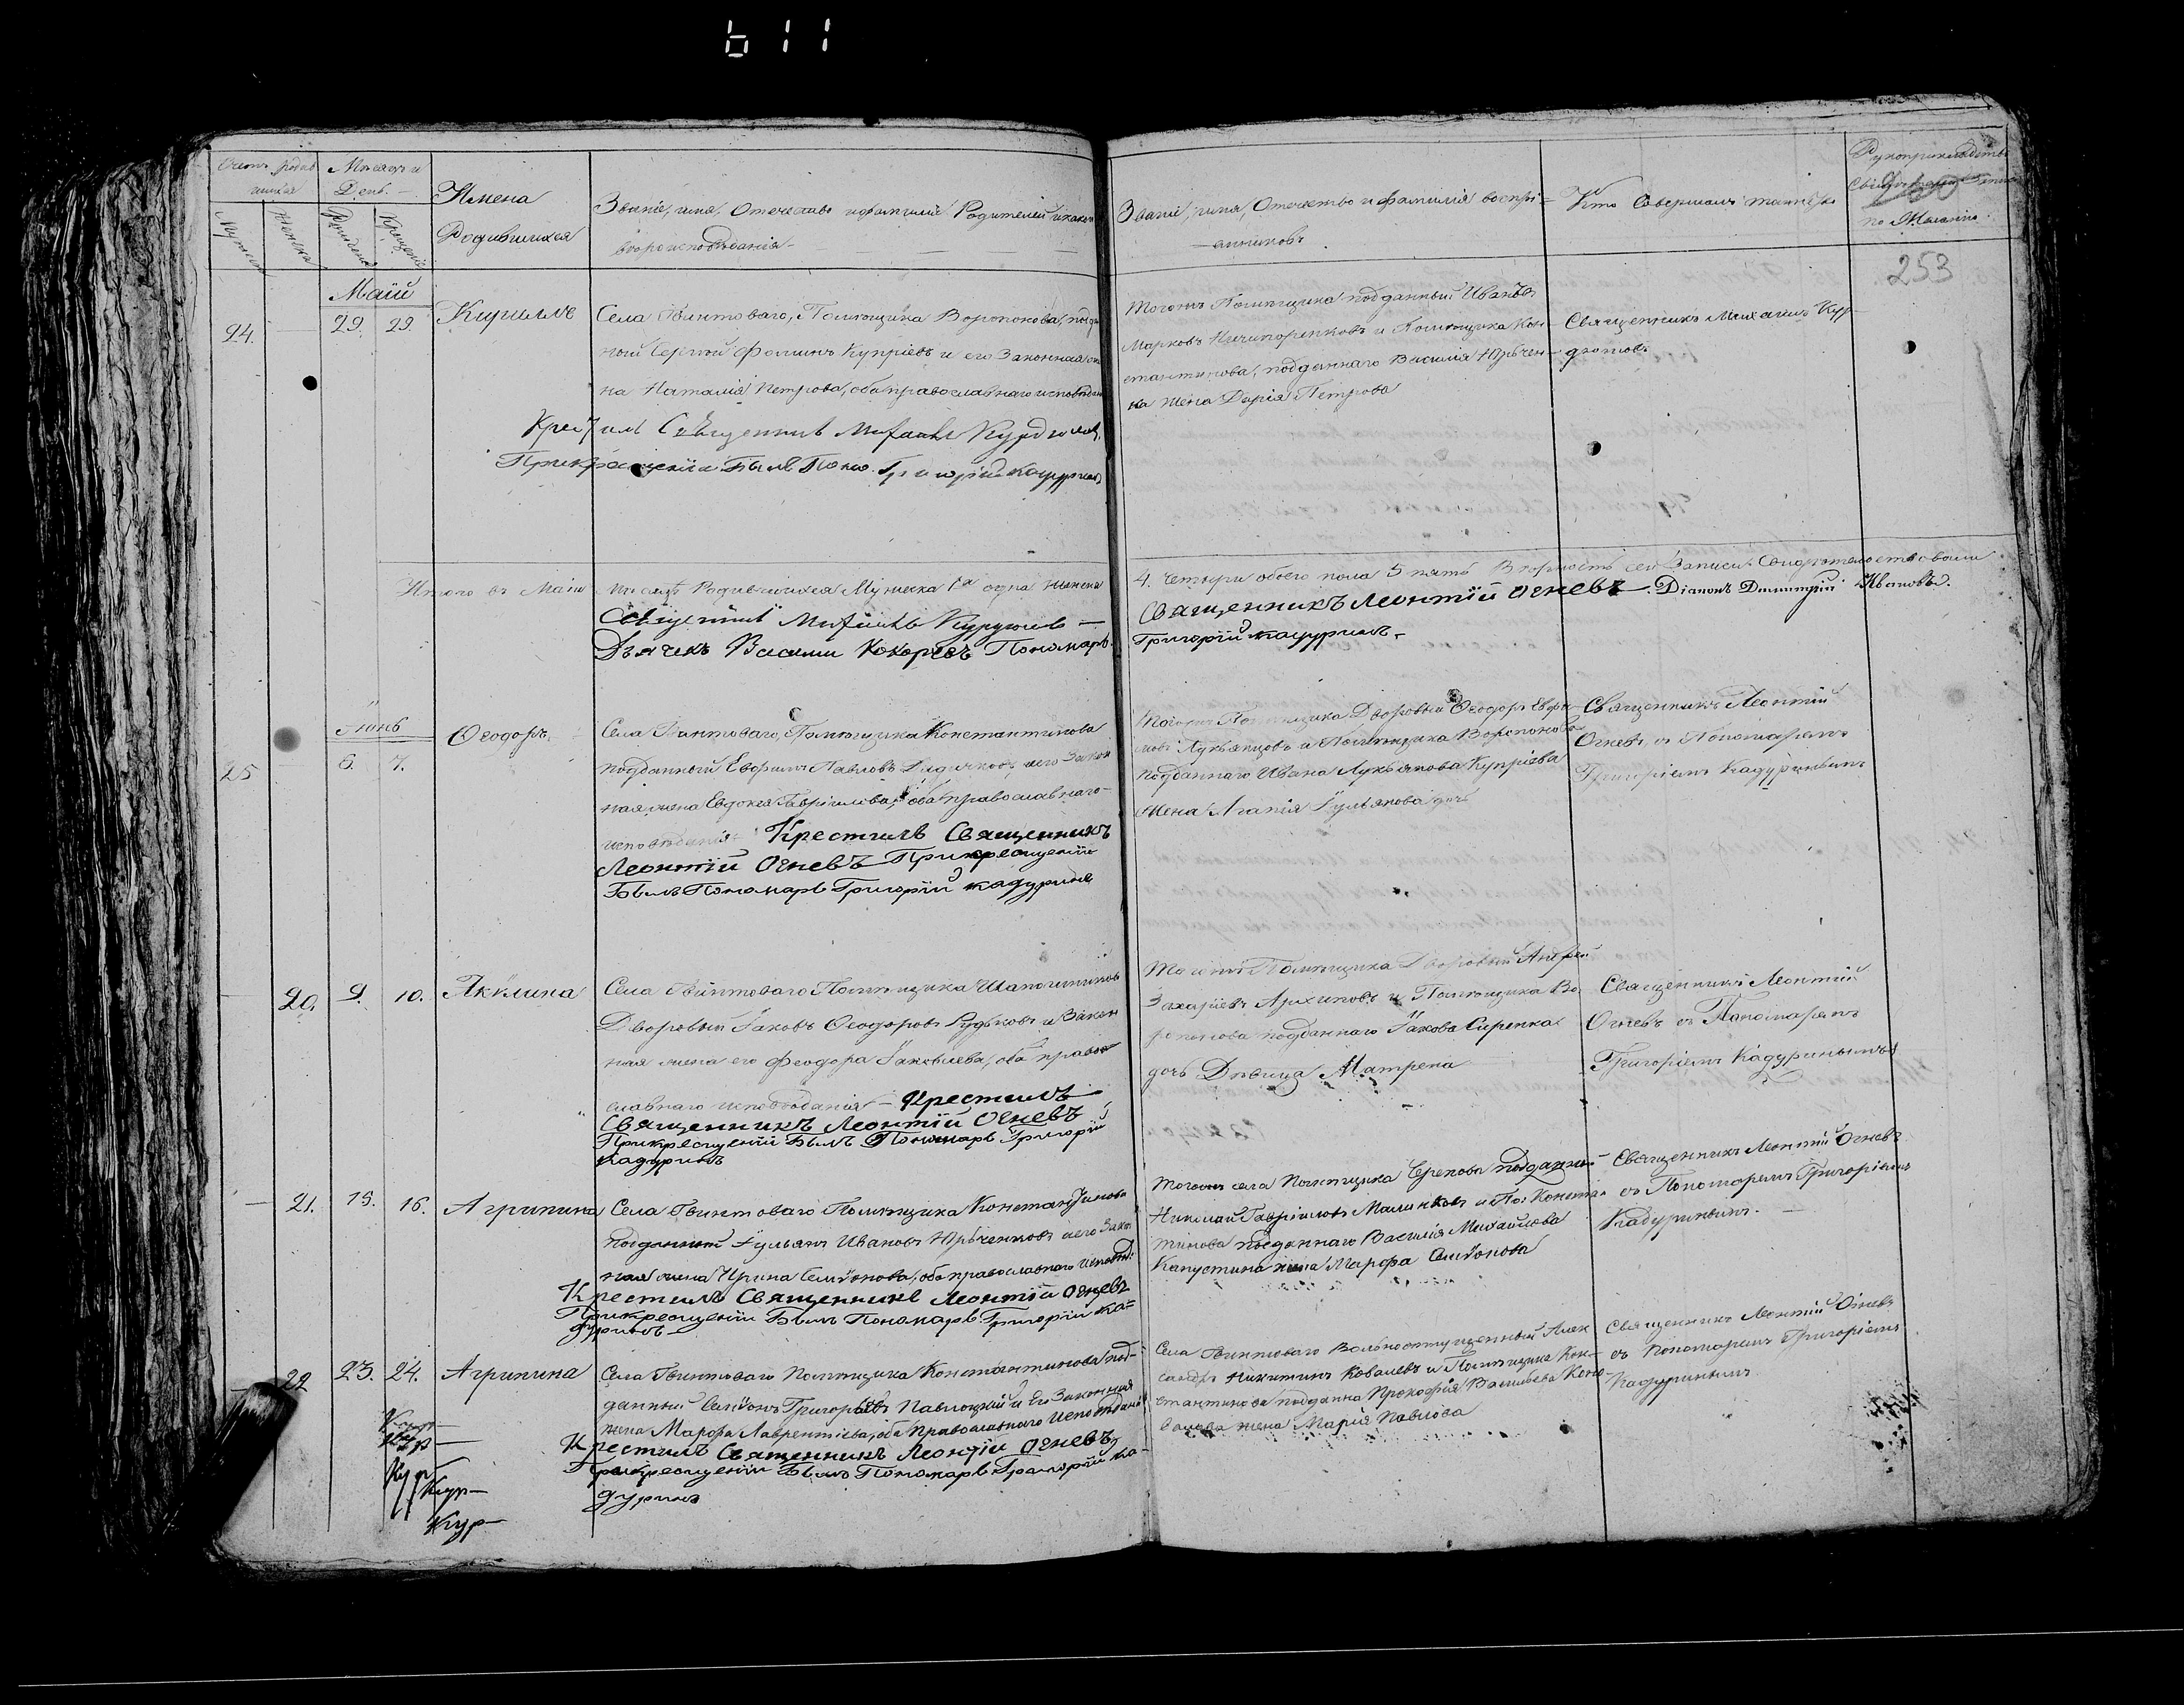 611
Счетъ родив
шихся
Мѣсяцъ и
День.
Мужеска
Женска
Рожденія
Крещенія
Имена
Родившихся
Званіе, имя, Отечество и фамилія Родителей и какого
вѣроисповѣданія
Званіе, имя, Отечество и фамилія воспрі-
емниковъ
Кто Совершалъ таинство
Рукоприкладство
по Желанію
253
Маій
24.
29. 29.
Кириллъ
Села Гвинтоваго, Помѣщика Воропонова, поддан
ный Сергѣй Фоминъ Купріевъ и его Законная же
на Наталія Петрова, оба православнаго исповѣдан
Крестилъ Священникъ Михаилъ Курдюмов
При крещеніи былъ Поно. Григорій Кадуринъ
Тогожъ Помѣщика подданный Иванъ
Марковъ Ничипоренковъ и Помѣщика Кон-
стантинова, подданнаго Василія Юрчен-
ка жена Дарія Петрова
Священникъ Михаилъ Кур-
дюмовъ
Итого въ Маіи
мѣсяцѣ Родившихся Мужеска 1 одна женска
4. четыри обоего пола 5 пять Вѣрность сей Записи Свидѣтельствовали
Священникъ Михаилъ Курдюмовъ
Священникъ Леонтій Огневъ. Діаконъ Димитрій Ивановъ.
Дьячекъ Василій Кокоревъ Пономарь
Григорій Кадуринъ
Іюнь
25
6. 7.
Ѳеодоръ
Села Гвинтоваго, Помѣщика Константинова
подданный Ефимъ Павловъ и его Закон
ная жена Евдокія Гавріилова, оба православнаго
исповѣданія Крестилъ Священникъ
Леонтій Огневъ При крещеніи
Былъ Пономарь Григорій Кадуринъ
Тогожъ Помѣщика Дворовый Ѳеодоръ Ефи
мовъ Лукьянцовъ и Помѣщика Воропонова
подданнаго Ивана Лукьянова Купріева
жена Агапія Гульянова дочь
Священникъ Леонтій
Огневъ съ Пономаремъ
Григоріемъ Кадуринымъ
20. 9. 10.
Акклина
Села Гвинтоваго Помѣщика Шапошников
Дворовый Іаковъ Ѳеодоровъ Рудьковъ и Закон
ная жена его Феодора Іаковлева, оба право
славнаго исповѣданія Крестилъ
Священникъ Леонтій Огневъ
При крещеніи Былъ Пономарь Григорій
Кадуринъ
Тогожъ Помѣщика Дворовый Андрей
Захаріевъ Архиповъ и Помѣщика Во
ропонова подданнаго Іакова Сиренка
дочь Дѣвица Матрена
Священникъ Леонтій
Огневъ съ Пономаремъ
Григоріемъ Кадуринымъ
21. 15. 16.
Агрипина
Села Гвинтоваго Помѣщика Константинова
подданный Гульянъ Ивановъ Юрченковъ и его Закон
ная жена Ирина Семіонова, оба православнаго исповѣд
Крестилъ Священникъ Леонтій Огневъ
При крещеніи Былъ Пономарь Григорій Ка-
дуринъ
Тогожъ села Помѣщика Черепова подданный
Николай Гавріиловъ Малинковъ и По: Констан
тинова подданнаго Василія Михайлова
Капустина жена Марфа Семіонова
Священникъ Леонтій Огневъ
съ Пономаремъ Григоріемъ
Кадуринымъ.
22 23. 24.
Агрипина
Села Гвинтоваго Помѣщика Константинова под-
данный Семіонъ Григорьевъ Павлоцкій и Его Законная
жена Марфа Лаврентіева, оба православнаго исповѣданія
Крестилъ Священникъ Леонтій Огневъ
При крещеніи Былъ Пономарь Григорій Ка-
дуринъ
Села Гвинтоваго Вольноотпущенный Алек
сандръ Никитинъ Ковалевъ и Помѣщика Кон-
стантинова подданна Прокофія Василіева Коно
валова жена Марія Павлова
Священникъ Леонтій Огневъ
съ Пономаремъ Григоріемъ
Кадуринымъ
Кур
Кур
Кур